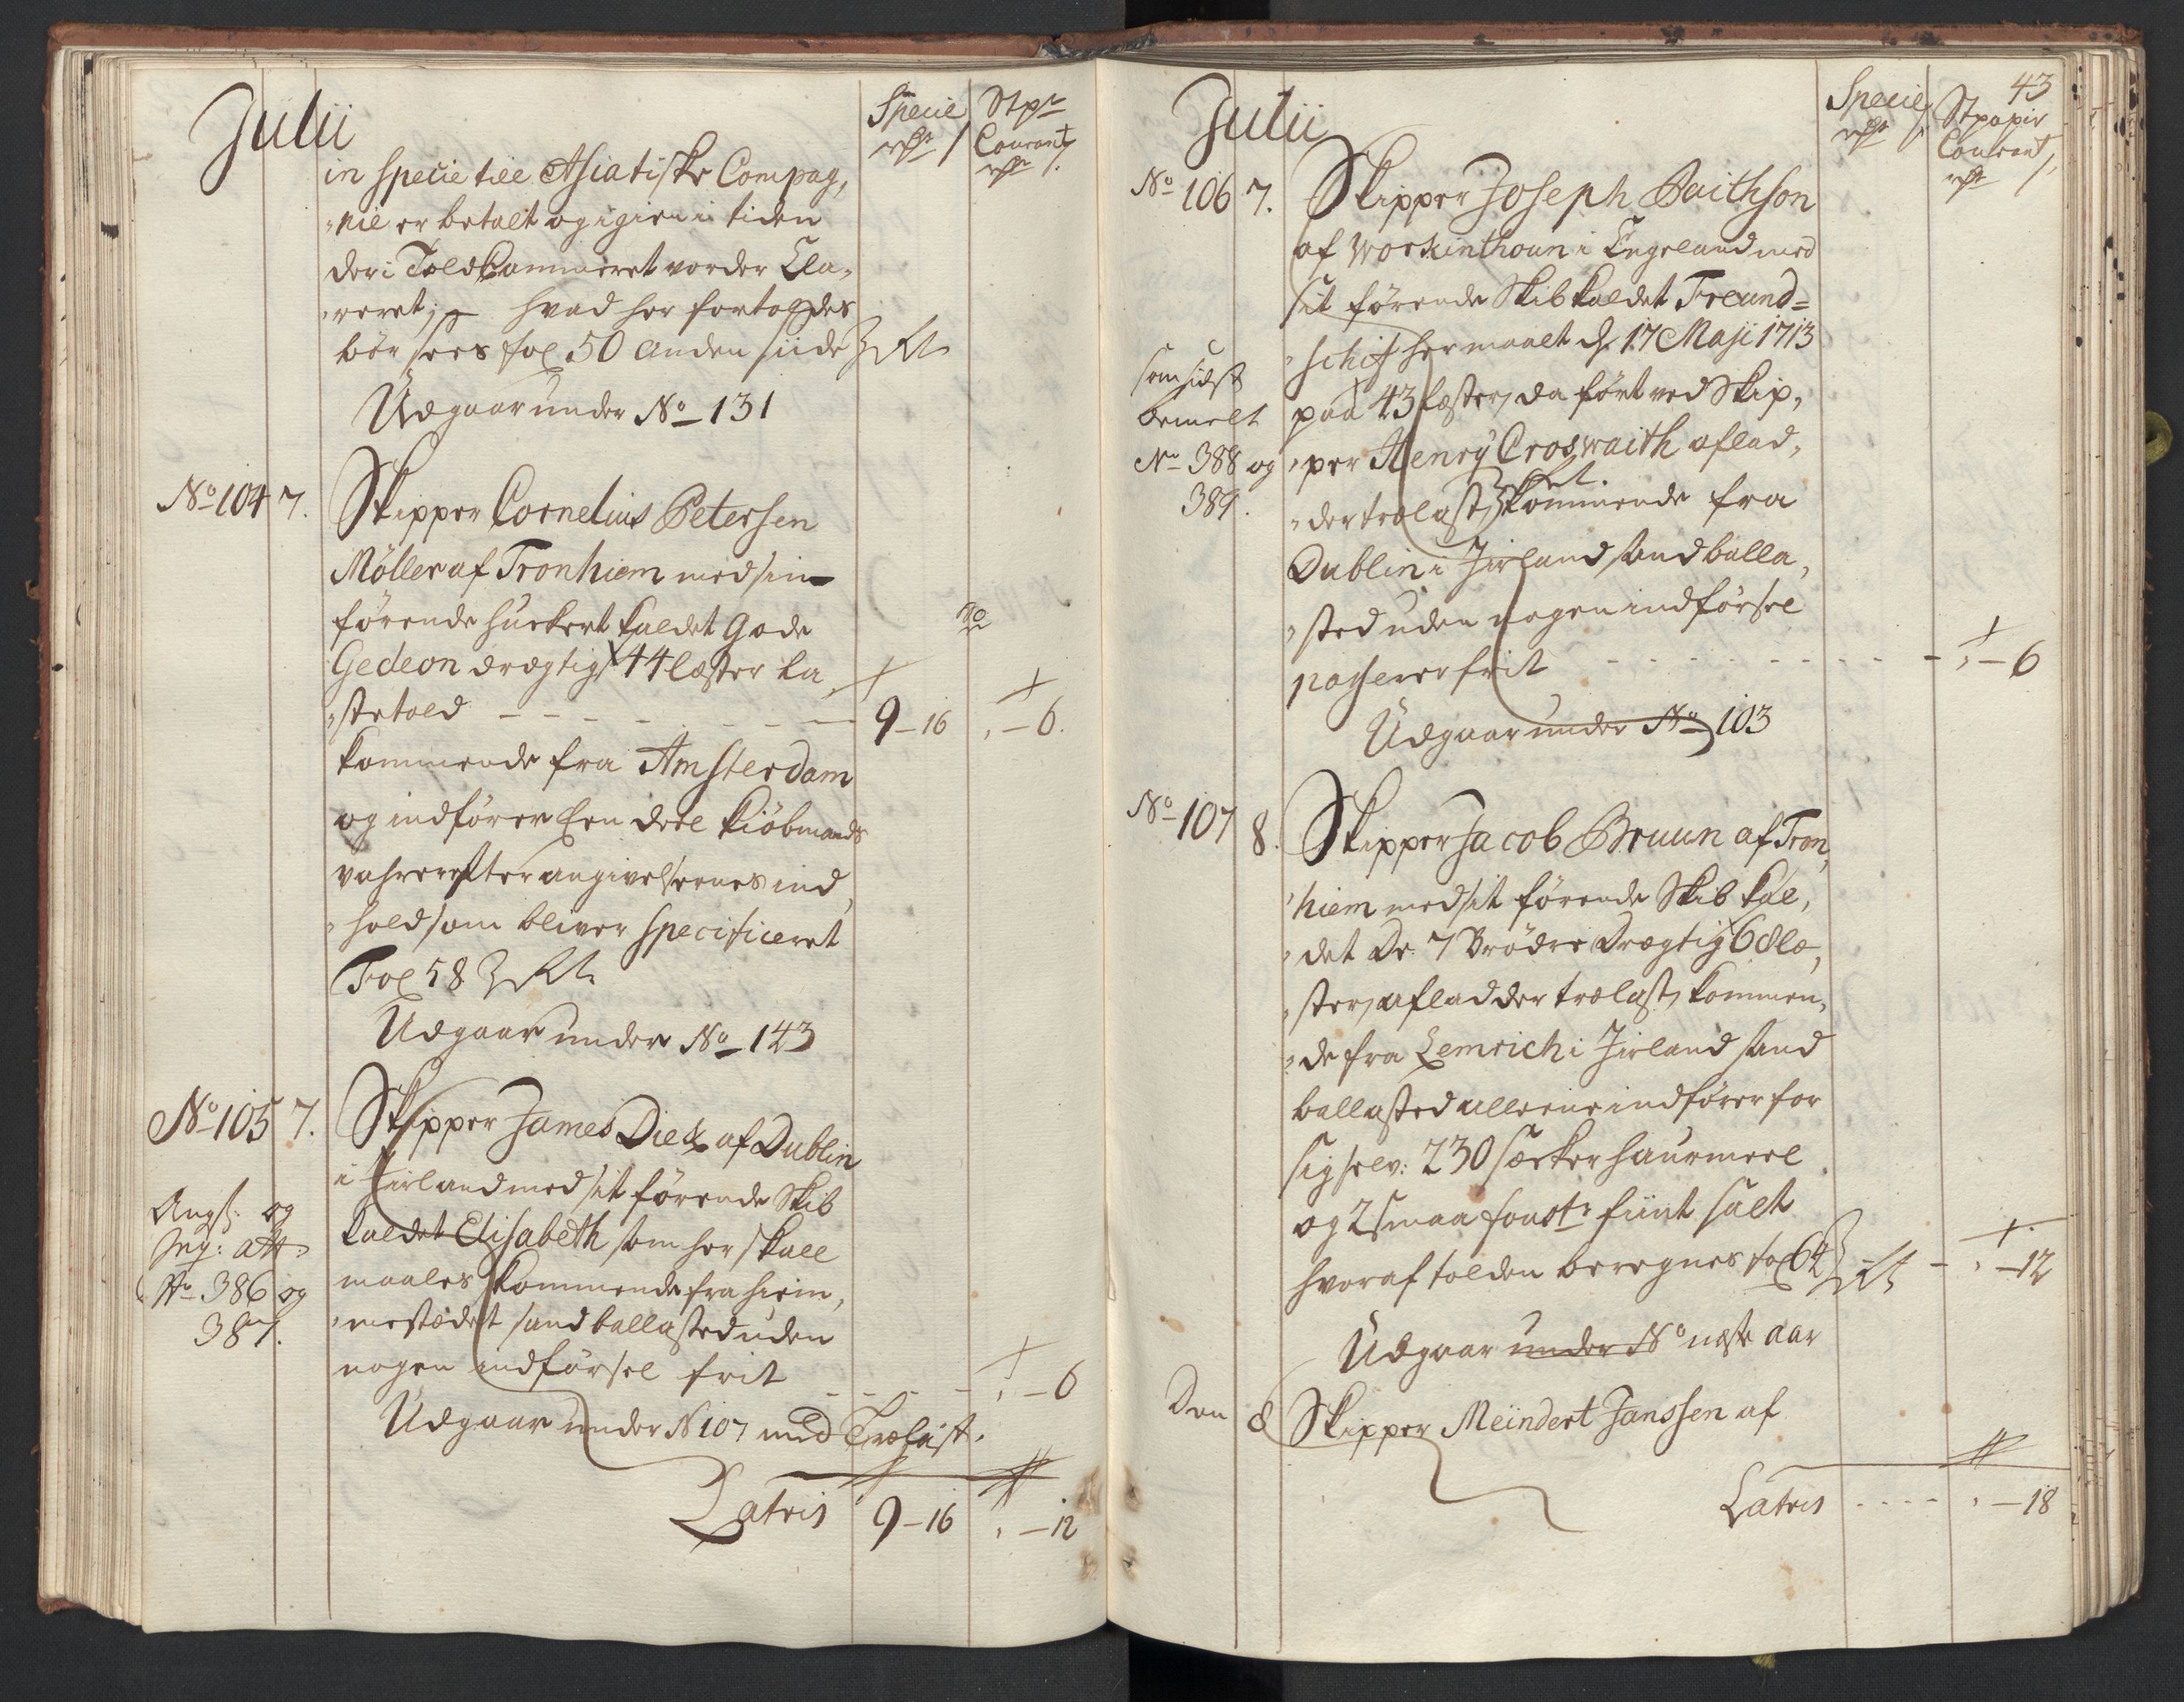 Julii
Specie Stpr
rdr / Courant
rdr /.
in specie till Asiatiske Compag,
nie er betalt og igien i tiden
der i Toldkammeret vorder Cla,
reret; hvad her fortoldes
bör sees fol 50 anden siide
Udgaar under No 131
No 104 7. Skipper Cornelius Petersen
Möller af Tronhiem med sin
förende Huckert kaldet Gode
Gedeon drægtig 44 læster La,
stetold - - - - - - - - 9-16 , -6.
kommende fra Amsterdam
og indförer Een deel Kiöbmands
vahrer efter angivelsernes ind,
hold som bliver specificeret
Fol 58
Udgaar under No 143
No 105 7. Skipper James Dick af Dublin
i Jirland med sit förende Skib
Angl: og
kaldet Elisabeth som her skall
Seg: att:
maales kommende fra hiem,
No 386 og
mestædet sandballasted uden
387.
nogen indförsel frit - - - - , -6
Udgaar under N 107 med Trælast.
Latris 9-16 , -12
43
Julii
Specie Stpapir
rdr / Courant
rdr /.
No 106 7. Skipper Joseph Baithson
af Workinthoun i Engeland med
sit förende Skib kaldet Freund=
schift her maalt d. 17 Maji 1713
som sidst
paa 43 læster, da fört ved Skip,
bemelt
per Henry Croswaith aflad,
No 388 og
der trælast kommende fra
389.
Dublin i Jirland sandballa,
sted uden nogen indförsel
passerer frit - - - - - - - - , -6
Udgaar under No 103
No 107 8. Skipper Jacob Bruun af Tron,
hiem med sit förende Skib kal,
det De 7 Brödre Drægtig 68 læ,
ster, aflad der trælast, kommen,
de fra Lemrich i Jirland sand
ballasted alleene indförer for
sig selv: 230 sæcker haurmeel
og 2 smaa fouster fiint salt
hvoraf tolden beregnes fol 64 - , -12
Udgaar under No næste aar
Den 8 Skipper Meindert Janssen af
Latris - - - - , -18